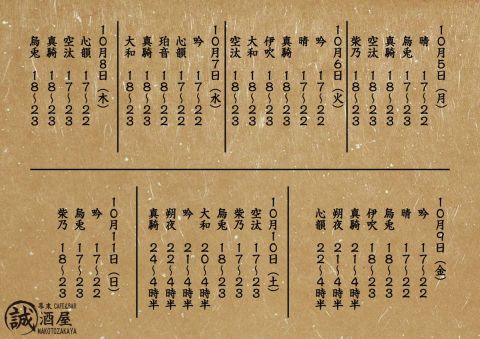 10月5日（月）
晴 17〜22
烏兎 17〜22
真騎 18〜23
空汰 18〜23
柴乃 18〜23
10月6日（火）
吟 17〜22
晴 17〜22
真騎 18〜23
伊吹 18〜23
大和 18〜23
空汰 18〜23
10月7日（水）
吟 17〜22
心韻 17〜22
珀音 17〜22
真騎 18〜23
大和 18〜23
10月8日（木）
心韻 17〜22
空汰 17〜22
真騎 18〜23
烏兎 18〜23
10月9日（金）
吟 17〜22
晴 17〜22
烏兎 18〜23
伊吹 18〜23
真騎 21〜4時半
朔夜 22〜4時半
心韻 22〜4時半
10月10日（土）
空汰 17〜22
柴乃 17〜23
烏兎 18〜23
大和 20〜4時半
吟 21〜4時半
朔夜 22〜4時半
真騎 24〜4時半
10月11日（日）
吟 17〜22
烏兎 17〜22
柴乃 18〜23
幕末 CAFE&BAR
誠酒屋
MAKOTOZAKAYA